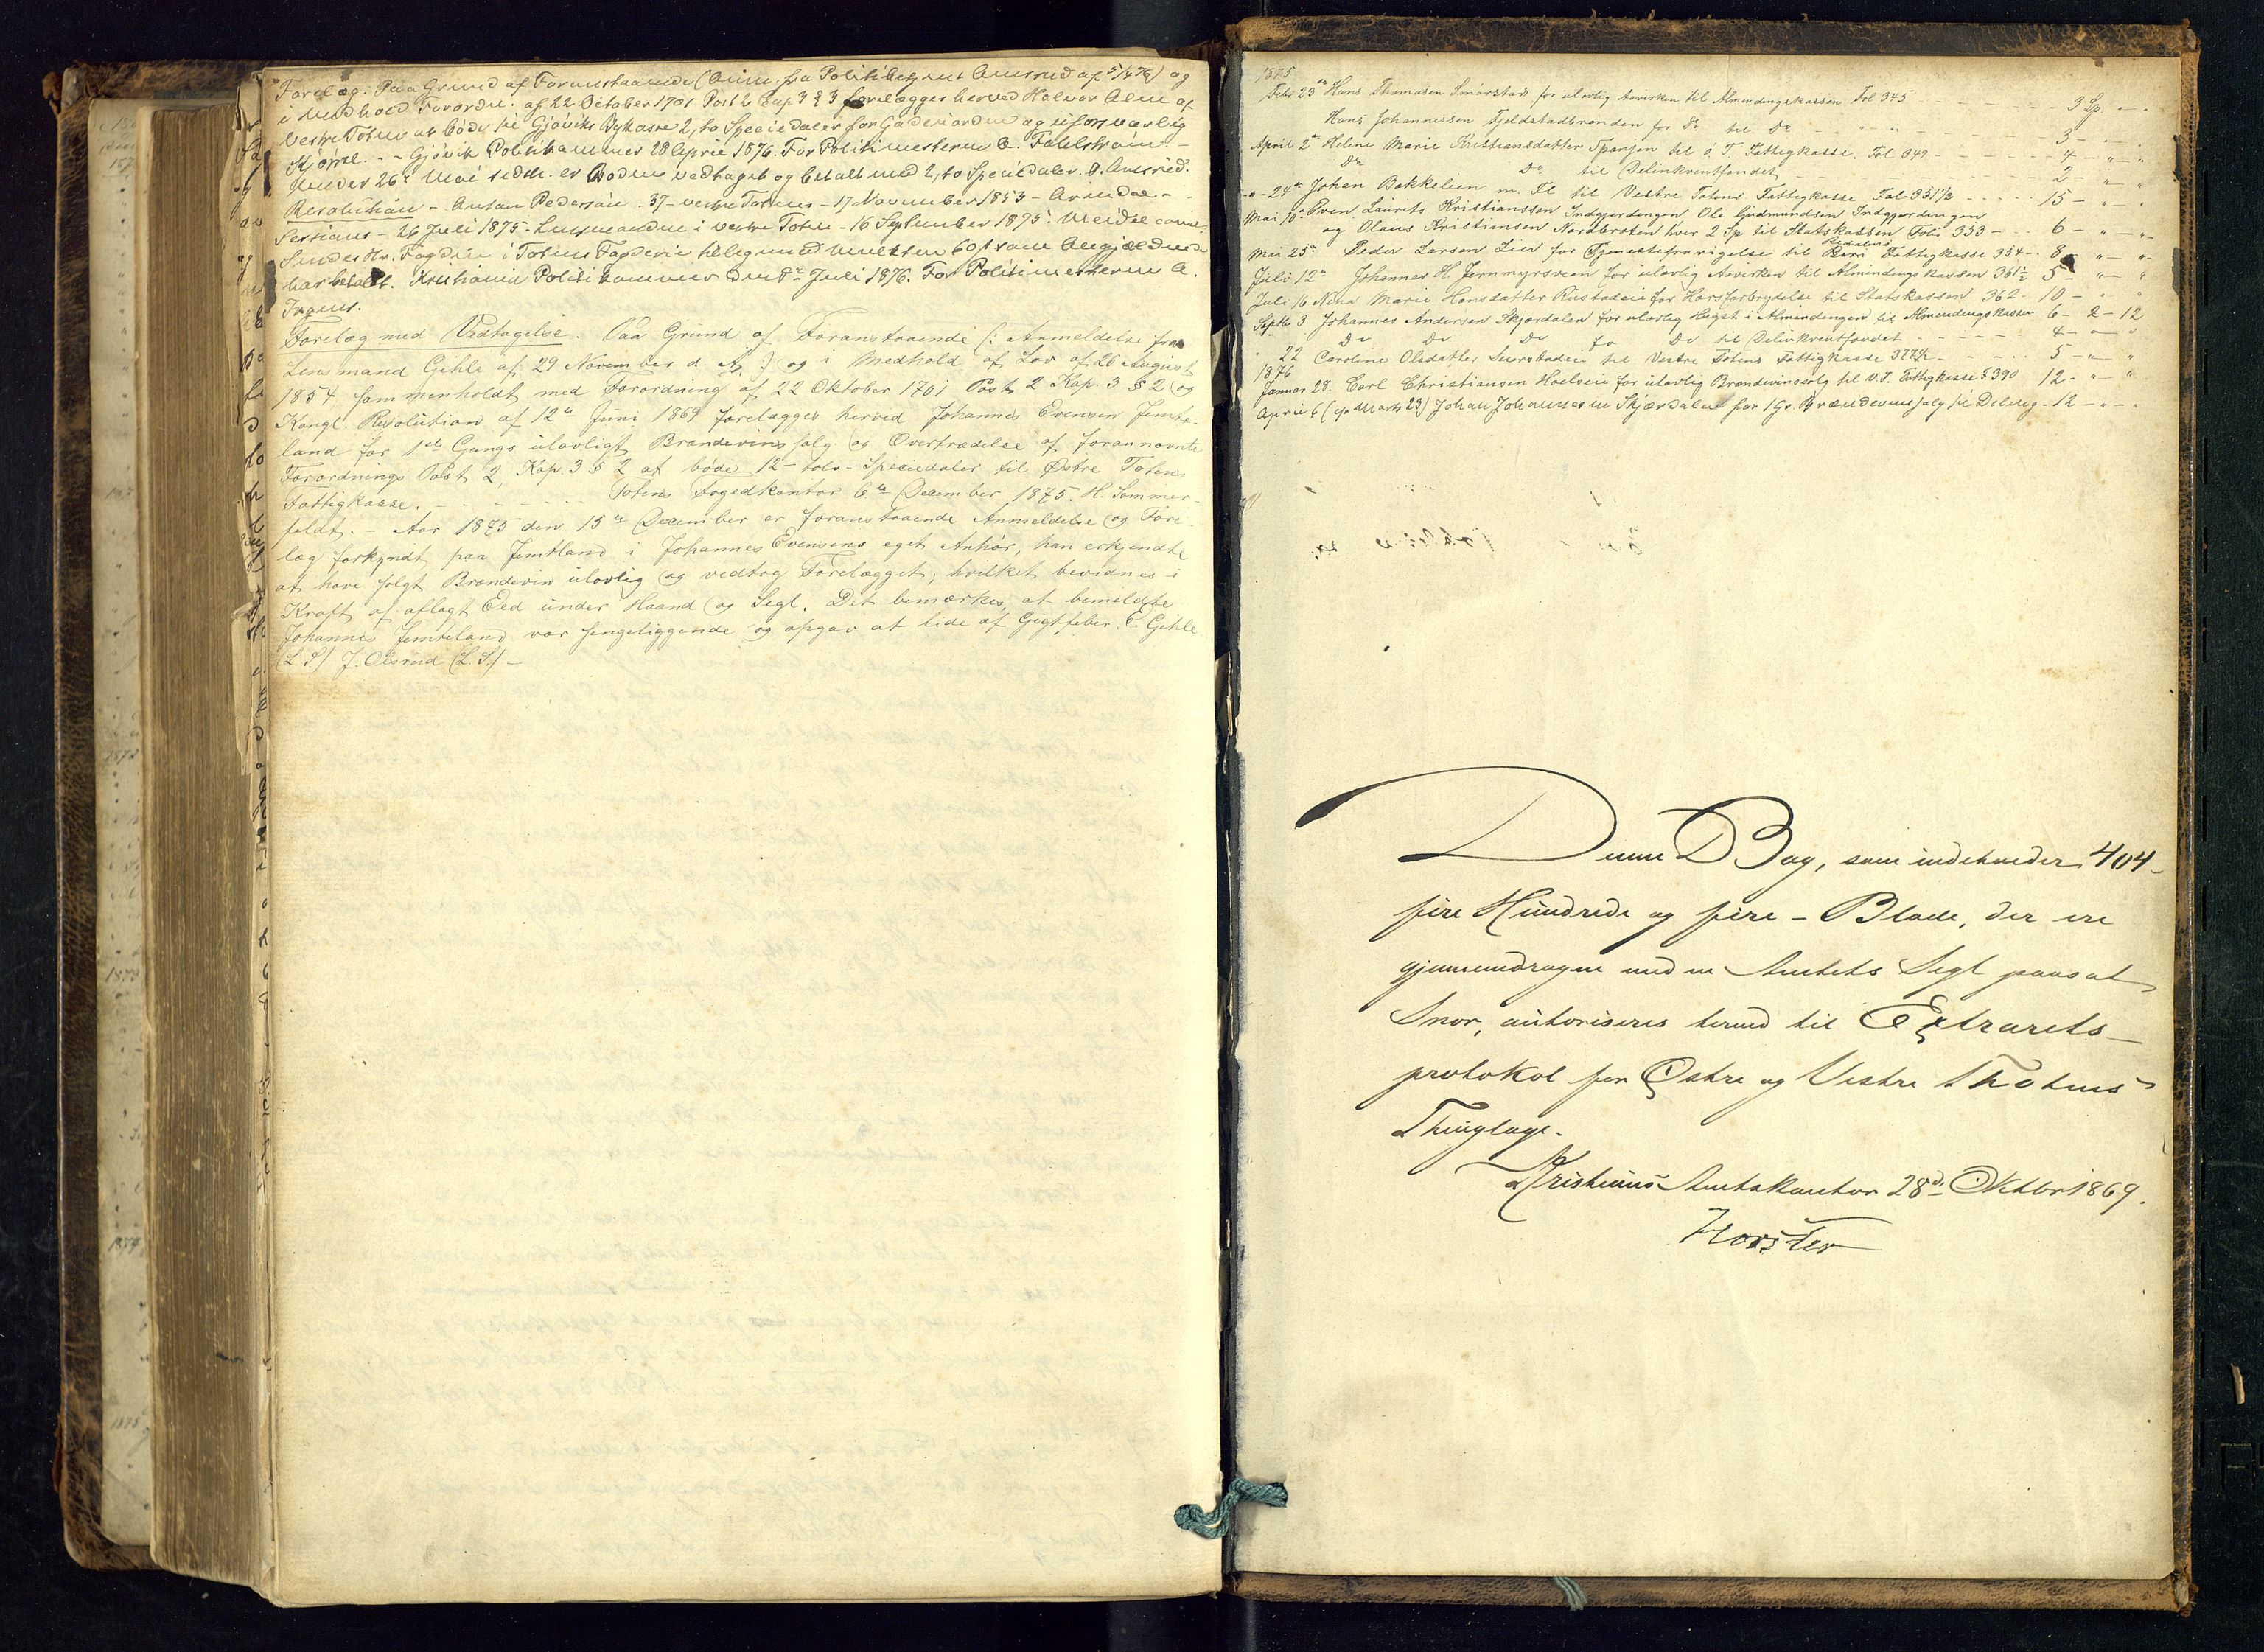 Forelæg. Paa Grund af Foranstaaende (Anm. fra Politibetjent Amrud af 5/4 76) og
i Medhold Forordn. af 22 October 1701 Post 2 Cap 3 § 3 forelægges herved Halvor Alm af
Vestre Toten at bøde til Gjøviks Bykasse 2, to Speciedaler for Gadeuorden og uforsvarlig
Kjørsel. - - Gjøvik Politikammer 28 April 1876. For Politimesteren
Under 26de Mai sedth. er Boden vedtaget og betalt med 2, to Speciedaler. Amrud.
Resolution - Anton Pedersen - 37 - vestre Toten - 17 November 1853 - Arendal -
Sessions - 26 Juli 1875 - Lensmanden i vestre Toten - 16 September 1875
Sendes Hr. Fogden i Totens Fogderi tilligemed Mulkten
har betalt. Kristiania Politikammer den 8de Juli 1876. For Politimesteren A.

Forelæg med Vedtagelse. Paa Grund af Foranstaaende (: Anmeldelse fra
Lensmand Gihle af 29 November d. A. :) og i Medhold af Lov af 26 August
1854 sammenholdt med Forordning af 22 Oktober 1701 Post 2 Kap. 3 § 2 og
Kongl. Resolution af 12te Juni 1869 forelægges herved Johannes Evensen Jemte-
land for 1ste Gangs ulovligt Brændevinssalg og Overtrædelse af forannævnte
Forordnings Post 2, Kap. 3 § 2 at bøde 12 - tolv - Speciedaler til Østre Totens
Fattigkasse. - - - Totens Fogedkontor 6te December 1875. H. Sommer-
feldt. - Aar 1875 den 15de December er foranstaaende Anmeldelse og Fore-
læg forkyndt paa Jemtland i Johannes Evensens eget Anhør, han erkjendte
at have solgt Brændevin ulovlig og vedtog Forelægget; hvilket bevidnes i
Kraft af aflagt Eed under Haand og Segl. Det bemærkes, at bemeldte
Johannes Jemteland var sengeliggende og opgav at lide af Gigtfeber. E. Gihle
(L. S.) J. Olsrud (L. S.) -
1875
Feb. 23de Hans Thomasen Smørstad for ulovlig Aavirken til Almendingskassen Fol 345 - - - 3 Sp. - "
Hans Johannessen Fjeldstadbrønden for Do til Do - - - 3 - "
April 2de Helene Marie Kristiansdatter Spangen til ø. T. Fattigkasse. Fol 349 - - - 4 - " - "
Do Do til Delinkventfondet - - - 2 - " "
- " - 24de Johan Bakkelien m. Fl til Vestre Totens Fattigkasse Fol 351 1/2 - - - 15 - " - "
Mai 10de Even Laurits Kristianssen Indgjerdingen, Ole Gudmundsen Indgjerdingen
og Olaus Kristiansen Nordbroten hver 2 Sp til Statskassen Folio 353 - - - 6 - " - "
Mai 25de Peder Larsen Lier for Tjenestefravigelse til Biri Redalens Fattigkasse 354 - - 8 - " - "
Juli 12te Johannes H. Jernmyrsveen for ulovlig Aavirken til Almindingskassen 361 1/2 5 - " - "
Juli 16 Nina Marie Hansdatter Rustadeie for Horsforbrydelse til Statskassen 362 - 10 - " "
Septbr 3 Johannes Andersen Skjærdalen for ulovlig Hugst i Almindingen til Almindingskassen 6 - 2 - 12
Do Do Do for Do til Delinkventfondet - - - 4 - " - "
" 22 Caroline Olsdatter til Vestre Totens Fattigkasse 377 1/2 - - - 5 - " "
1876
Januar 28. Carl Christiansen Hoelseie for ulovlig Brændevinssalg til V. T. Fattigkasse F 390 12 - " - "
April 6 (ep. Marts 23) Johan Johannesen Skjærdalen for 1 G. Brændevinssalg til Delinq. - 12 - " - "
Denne Bog, som indeholder 404 -
fire Hundrede og fire - Blade, der ere
gjennemdragne med en Amtets Segl paasat
Snor, autoriseres herved til Extrarets-
protokol for Østre og Vestre Thotens
Thinglage.
Kristians Amtskontor 28de Oktbr 1869.